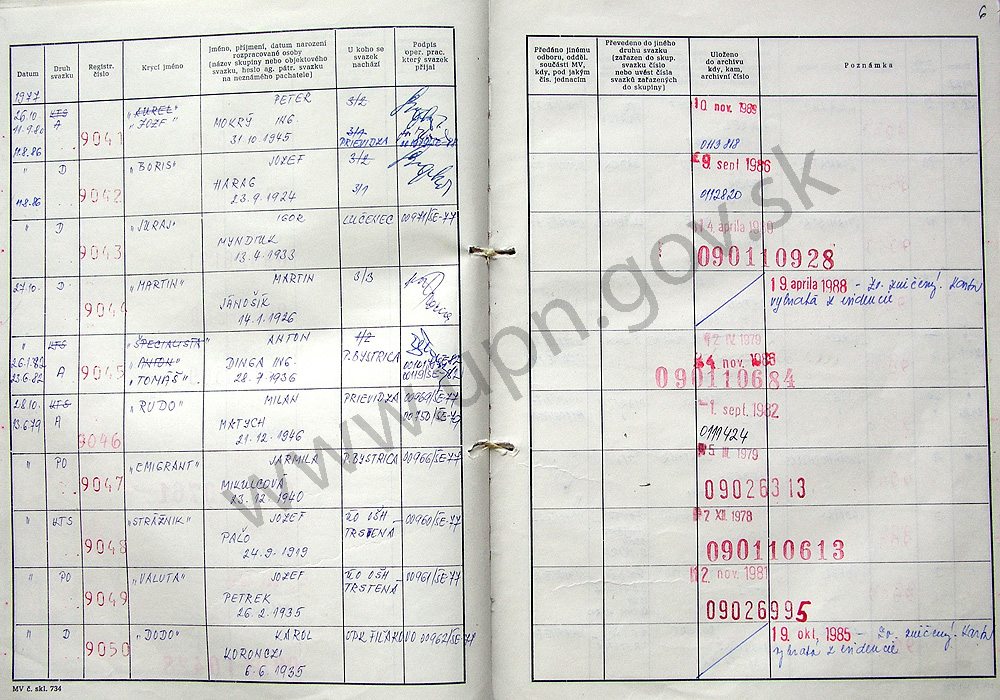 6
Datum
Druh svazku
Registr. číslo
Krycí jméno
Jméno, příjmení, datum narození rozpracované osoby (název skupiny nebo objektového svazku, heslo ag. pátr. svazku na neznámého pachatele)
U koho se svazek nachází
Podpis oper. prac. který svazek přijal
Předáno jinému odboru, odděl. součásti MV, kdy, pod jakým čís. jednacím
Převedeno do jiného druhu svazku (zařazen do skup. svazku číslo nebo uvést čísla svazků zařazených do skupiny)
Uloženo do archivu kdy, kam, archivní číslo
Poznámka
1977
26.10. KTS 9041 "AUREL" PETER 3/2
11.9.80 A "JOZEF" MOKRÝ ING. 3/1
11.8.86 31.10.1945 PRIEVIDZA
10. nov. 1989
0113818
" D 9042 "BORIS" JOZEF 3/2
11.8.86 HARAG 3/1
23.9.1924
9. sept 1986
0112820
" D 9043 "JURAJ" IGOR LUČENEC 00971/SE-77
MYNDIUK
13.4.1933
090110928
27.10. D 9044 "MARTIN" MARTIN 3/3
JÁNOŠÍK
14.1.1926
19. apríla 1988 - Zv. zničený. Karta
vybratá z evidencie
" KTS 9045 "ŠPECIALISTA" ANTON 1/2
26.1.82 "ANTON" DINGA ING. P.BYSTRICA
23.6.82 A "TOMÁŠ" 28.7.1936
2 IV. 1979
090110684
28.10. KTS 9046 "RUDO" MILAN PRIEVIDZA 00969/SE-77
13.6.79 A MATYCH
21.12.1946
1. sept. 1982
0111424
" PO 9047 "EMIGRANT" JARMILA P.BYSTRICA 00966/SE-77
MIKULCOVÁ
23.12.1940
5 III. 1979
09026313
" KTS 9048 "STRÁŽNIK" JOZEF ŽO OŠH TRSTENÁ 00960/SE-77
PAĽO
24.9.1919
2 XII. 1978
090110613
" PO 9049 "VALUTA" JOZEF ŽO OŠH TRSTENÁ 00961/SE-77
PETREK
26.2.1935
12. nov. 1981
09026995
" D 9050 "DODO" KAROL OPK FIĽAKOVO 00962/SE-77
KORONCZI
6.6.1935
19. okt. 1985 - Zv. zničený. Karta
vybratá z evidencie
MV č. skl. 734
www.upn.gov.sk